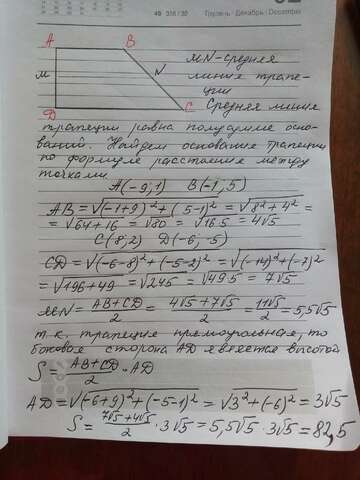 49 336/30 Грудень • Декабрь | December
A B
M N
D C
MN-средняя
линия трапе-
ции
Средняя линия
трапеции равна полусумме осно-
ваний. Найдем основания трапеции
по формуле расстояние между
точками.
A(-9,1) B(-1,5)
AB = √(-1+9)² + (5-1)² = √8² + 4² =
= √64+16 = √80 = √16·5 = 4√5
C(8;2) D(-6;-5)
CD = √(-6-8)² + (-5-2)² = √(-14)² + (-7)²
= √196+49 = √245 = √49·5 = 7√5
MN = AB+CD/2 = 4√5+7√5/2 = 11√5/2 = 5,5√5
т.к. трапеция прямоугольная, то
боковая сторона AD является высотой
S = AB+CD/2 · AD
AD = √(-6+9)² + (-5-1)² = √3² + (-6)² = 3√5
S = 7√5+4√5/2 · 3√5 = 5,5√5 · 3√5 = 82,5